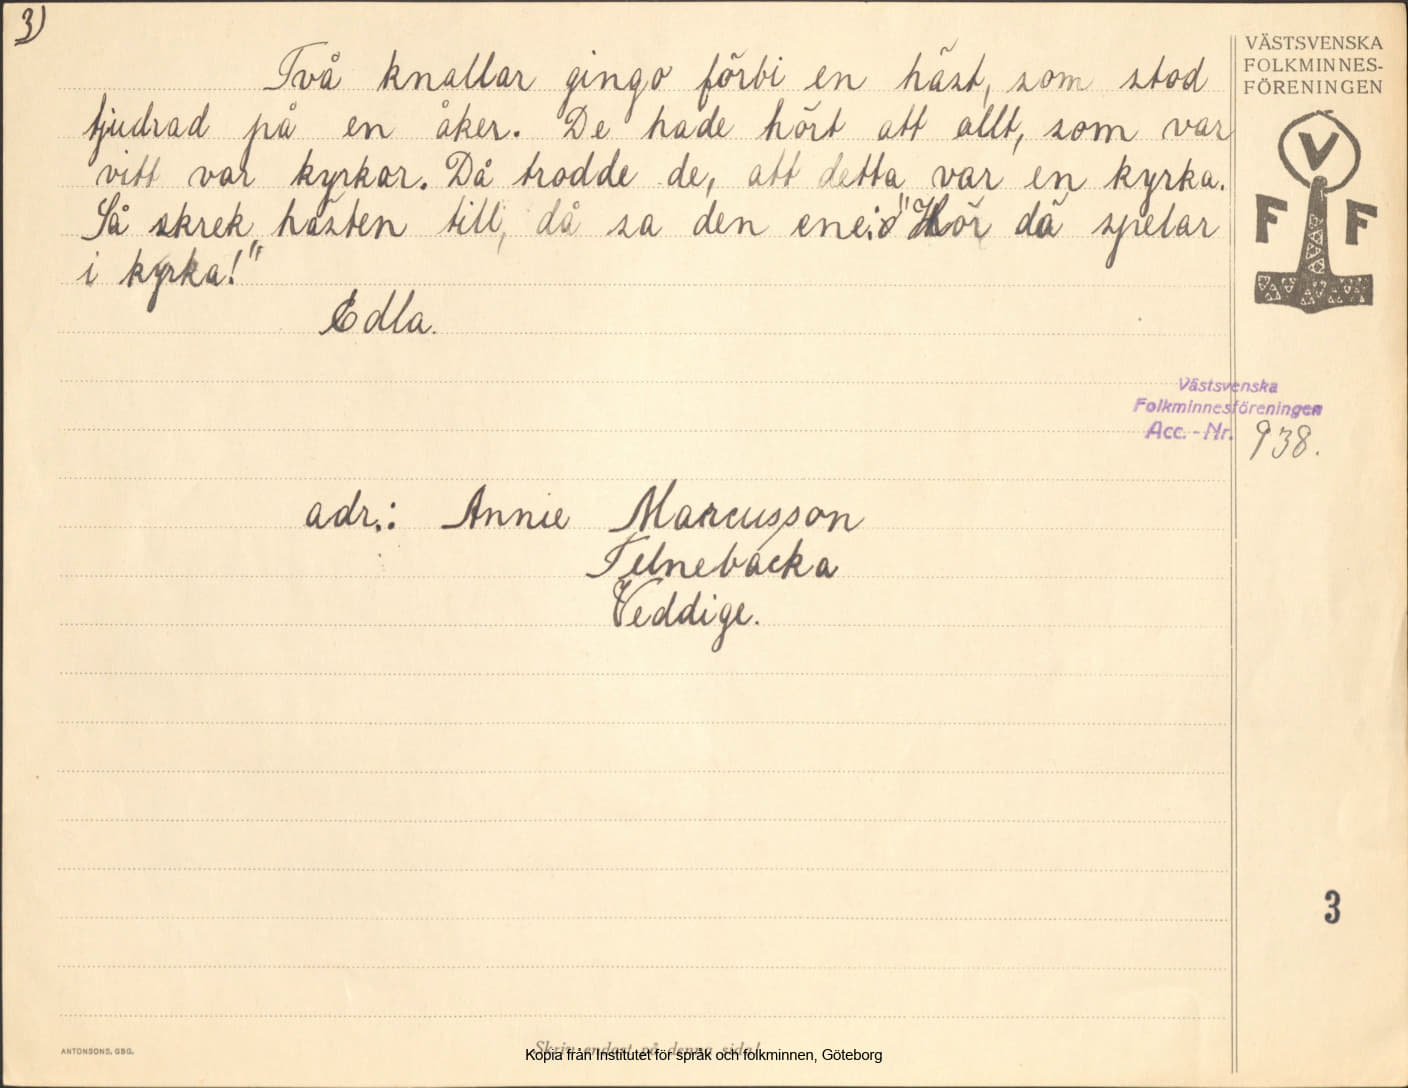 3)
Två knallar gingo förbi en häst, som stod
tjudrad på en åker. De hade hört att allt, som var
vitt var kyrkor. Då trodde de, att detta var en kyrka.
Så skrek hästen till, då sa den ene: "Hör dä spelar
i kyrka!"
Edla.
adr.: Annie Marcusson
Veddige.
VÄSTSVENSKA
FOLKMINNES-
FÖRENINGEN
V
F F
Västsvenska
Folkminnesföreningen
Acc. - Nr. 938.
3
ANTONSONS, GBG.
Skriv endast på denna sida!
Kopia från Institutet för språk och folkminnen, Göteborg